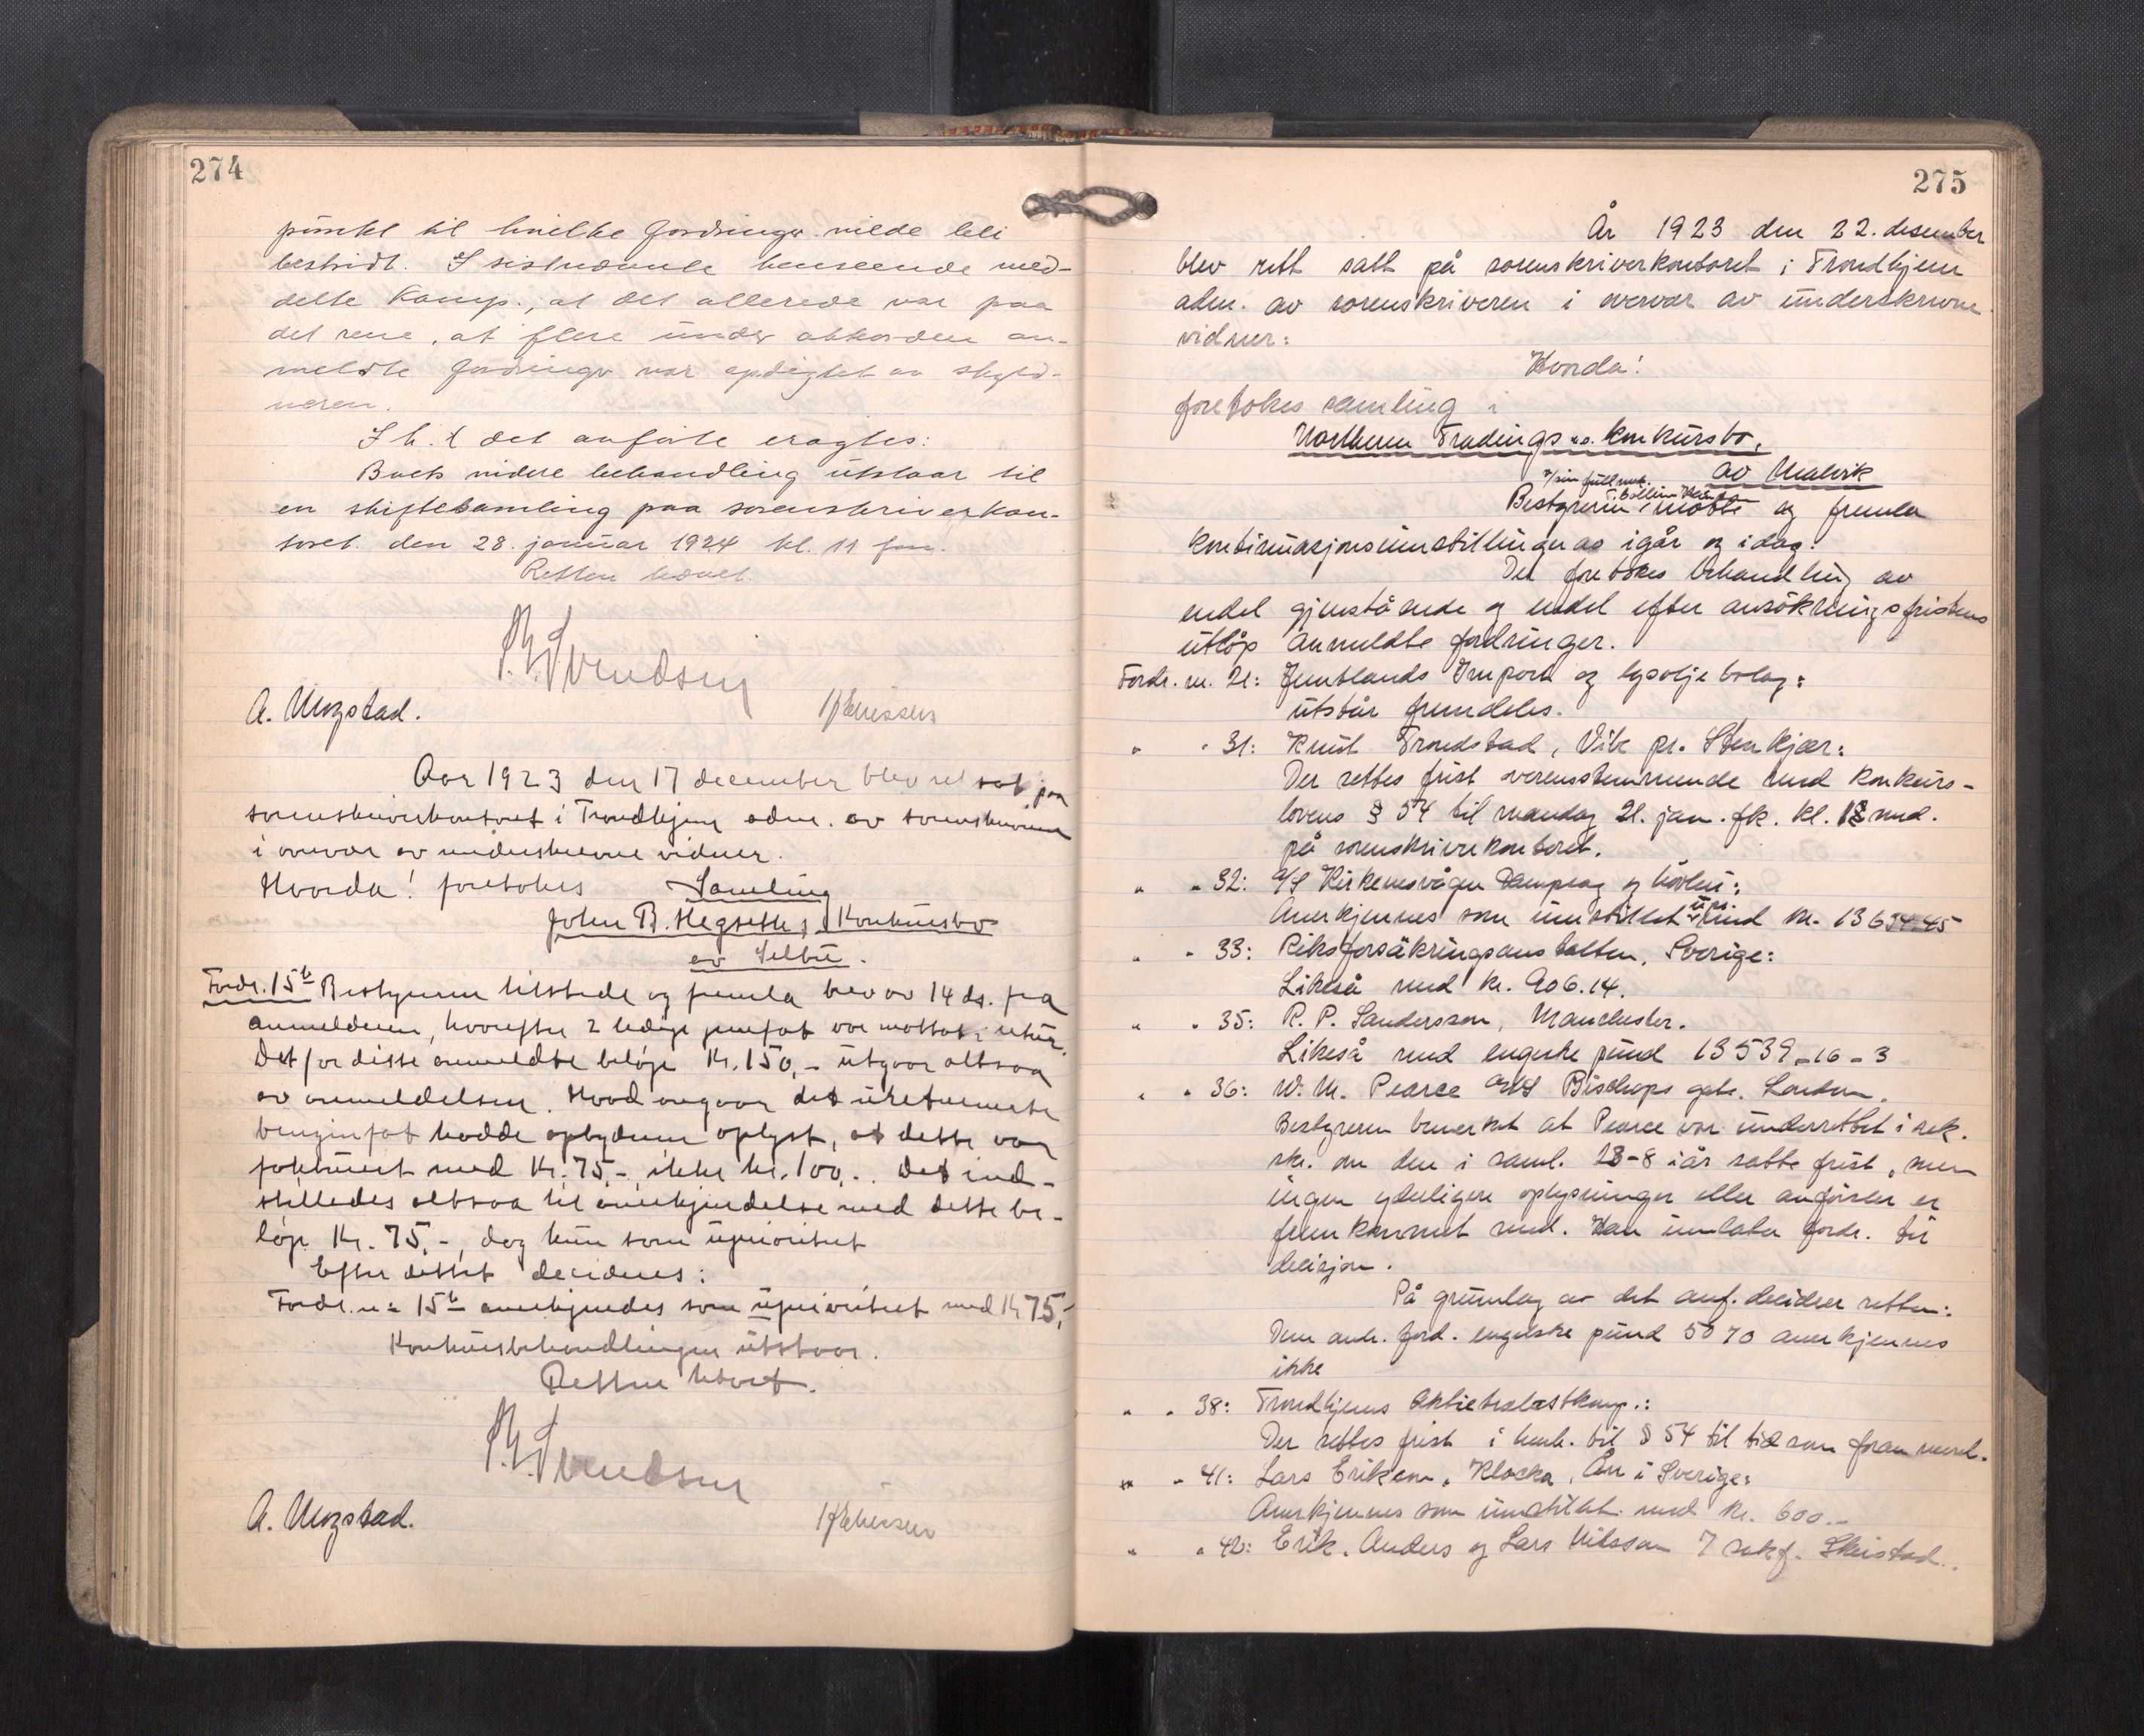 274
punkt til hvilke fordringer vilde bli
bestridt. I sistnævnte henseende med-
delte Komp., at det allerede var paa
det rene, at flere under akkorden an-
meldte fordringer var opdigtet av skyld-
neren.
I h. t det anførte eragtes:
Boets videre behandling utstaar til
en skiftesamling paa sorenskriverkon-
toret den 28. januar 1924 kl. 11 fm.
Retten hævet
Svendsen
A. Mogstad.
Aar 1923 den 17 december blev ret sat paa
sorenskriverkontoret i Trondhjem adm. av sorenskriveren
i overvær av underskrevne vidner.
Hvorda! foretokes Samling
John B. Hegseths Konkursbo
av Selbu.
Fordr. 15b Bestyreren tilstede og fremla brev av 14 ds. fra
anmelderen, hvorefter 2 ledige fat var mottat i retur.
Det for disse anmeldte beløp Kr. 150,- utgaar altsaa
av anmeldelsen. Hvad angaar det ureturnerte
benzinfat hadde opbyderen oplyst, at dette var
fakturert med Kr. 75,-, ikke kr. 100,-. Det ind-
stilledes altsaa til anerkjendelse med dette be-
løp Kr. 75,-, dog kun som uprioritert
Efter dette decideres:
Fordr. nr 15b anerkjendes som uprioritert med Kr 75,-
Konkursbehandlingen utstaar.
Retten hævet.
Svendsen
A. Mogstad.
275
År 1923 den 22. desember
blev rett satt på sorenskriverkontoret i Trondhjem
adm. av sorenskriveren i overvær av underskrevne
vidner:
Hvorda!
foretokes samling i
Northern Tradings co. konkursbo,
av Malvik
v/sin fullm.
Bestyreren møtte og fremla
kontinuasjonsinnstillinger av igår og idag.
Der foretokes behandling av
endel gjenstående og endel efter ansøkningsfristens
utløp anmeldte fordringer.
Fordr. nr. 21: Jemtlands Import og lysoljebolag:
utstår fremdeles.
" " 31: Knut Trondstad, Vik pr. Stenkjær:
Der settes frist overensstemmende med konkurs-
lovens § 54 til mandag 21. jan. fk. kl. 12 md.
på sorenskriverkontoret.
" " 32: A/S Kirkenesvågen Dampsag og høvleri:
Anerkjennes som innstillet upr. med kr. 13634.45
" " 33: Riksforsäkringsanstalten, Sverige:
Likeså med kr. 906.14.
" " 35: R. P. Sandersson, Manchester.
Likeså med engelske pund 13539-16-3
" " 36: W. M. Pearce Bischops gate. London.
Bestyreren bemerket at Pearce var underrettet i rek.
skr. om den i saml. 18-8 iår satte frist, men
ingen yderligere oplysninger eller anførsler er
fremkommet med. Han innlater fordr. til
decisjon.
På grunnlag av det anf. decideer retten:
Den anm. ford. engelske pund 5070 anerkjennes
ikke
" " 38: Trondhjems Aktietrælastkomp.:
Der settes frist i henh. til § 54 til tid som foran nevnt.
" " 41: Lars Erikson, Klocka, Ånn i Sverige:
Anerkjennes som innstillet med kr. 600.-
" " 42: Erik, Anders og Lars Nilsson